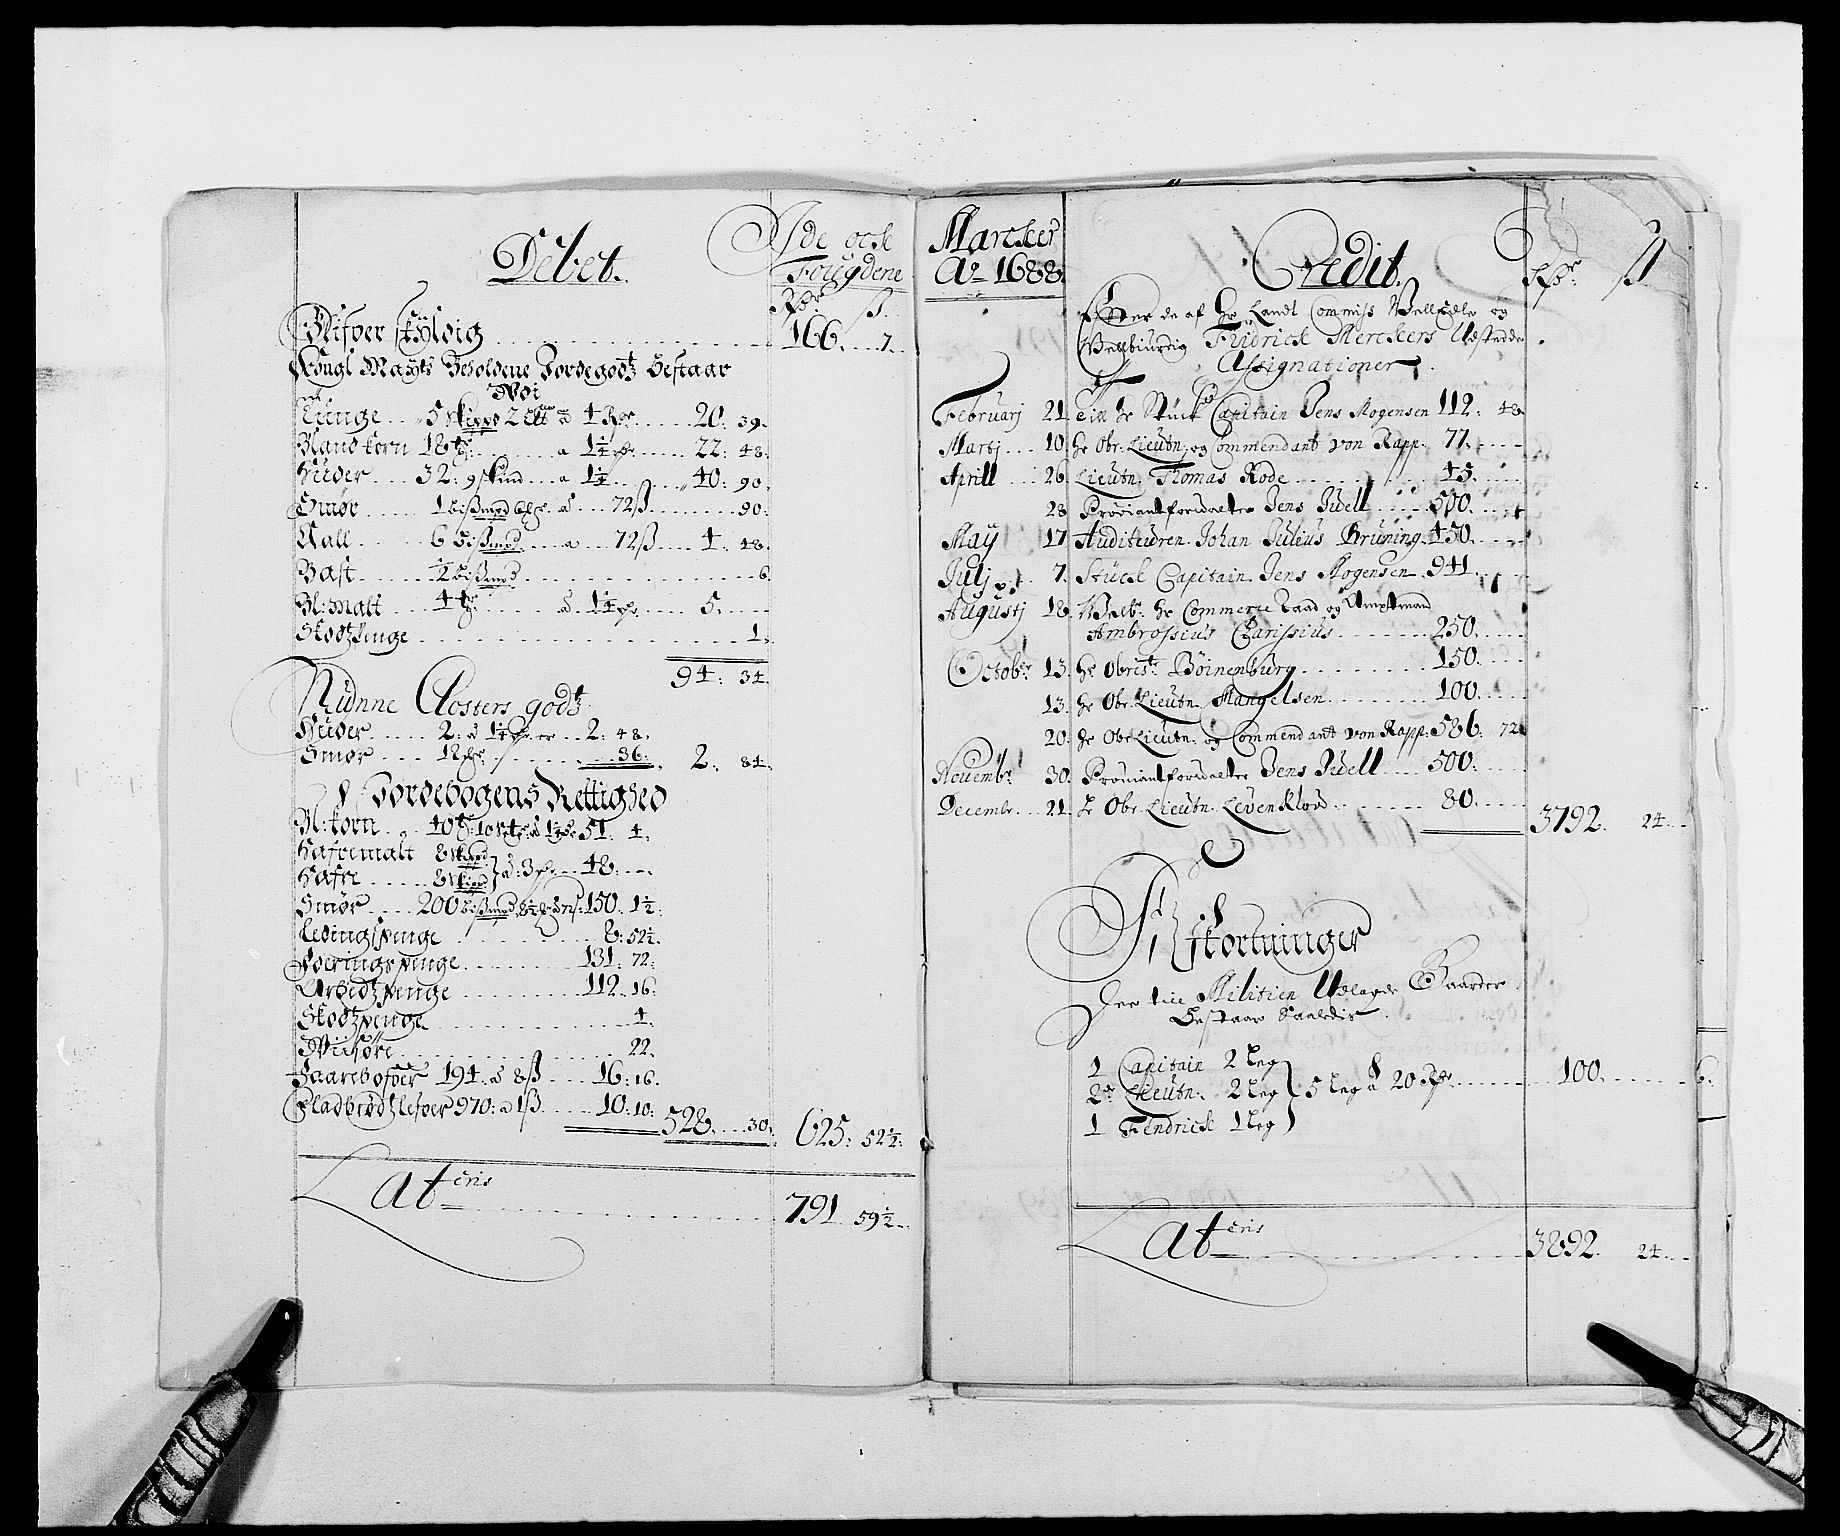 Debet.
Ide ock
Fougdene
Rdr ß.
Blifver skÿldig 166. 7.
Kongl Mayts Beholdene Jordegodtz Bestaar
Tünge 5 Skippd 2 a 4 Rdr 20: 39.
Blandkorn 18 a 1¼ 22: 48.
Hüder 32: 9 skind a 1¼ 40: 90.
Smør 1 bißmed 6 a 72ß 90.
Aall 6 bißmed a 72ß 4. 48.
Bast ½ bißmed 6.
Bl: malt 4 a 1¼ 5.
Skodtzpenge 1.
94: 34.
Nünne Closters godtz
Hüder 2: a 1¼ er 2: 48.
Smør 12 36. 2: 84.
Jordebogens Rettighed
Bl: korn 40 51. 4.
Hafremalt 8 Skippd
Hafre 8 Skippd a: 3 48.
Smør 200 bißmed 150. 1½
Ledingspenge 8: 52½.
Foeringspenge 131: 72:
Arbedtzpenge 112. 16.
Skodtzpenge 4.
Viisøre 22.
Faarebofver 194. a 8ß 16: 16.
Fladbrødzlefver 970: a 1ß 10: 10:
528. 30. 625: 52½.
Lateris 791 59½.
Marcker
Ao 1688.
Credit.
Rdr: ß
Efter de af Hr Landt Commiss Velledle og
Velbiurdig Fridrick Merckers Udstedde
Assignationer.
Februarj 21. Till Hr Stück Capitain Jens Mogensen 112: 48.
Martj 10. Hr Obr: Lieutn: og Commendant von Rapp 77.
Aprill 26. Lieutn: Thomas Rode 45.
28. Proviantforvalter Jens Juell 500.
May 17. Auditeuren Johan Julius Brüning 450.
Julj 7. Stück Capitain Jens Mogensen 941.
Augustj 18. Velb: Hr Commerce Raad og Amptmand
Ambrossius Charissius 250.
Octobr: 13. Hr Obriste Böinenburg 150.
13. Hr Obr: Lieutn. Mangelsen 100.
20. Hr Obr Lieutn: og Commendant von Rapp: 586. 72.
Novembr: 30. Proviantforvalter Jens Juell 500.
Decembr 21. Hr Obr: Lieutn: Levenklow 80.
3792. 24.
Afkortninger
Paa til Militien Udlagde Gaarder
Bestaar Saaledis
1 Capitain 2 Leg
2de Lieutn: 2 Leg 5 Leg a 20 Rdr 100.
1 Fendrick 1 Leg
Lateris 3892. 24.